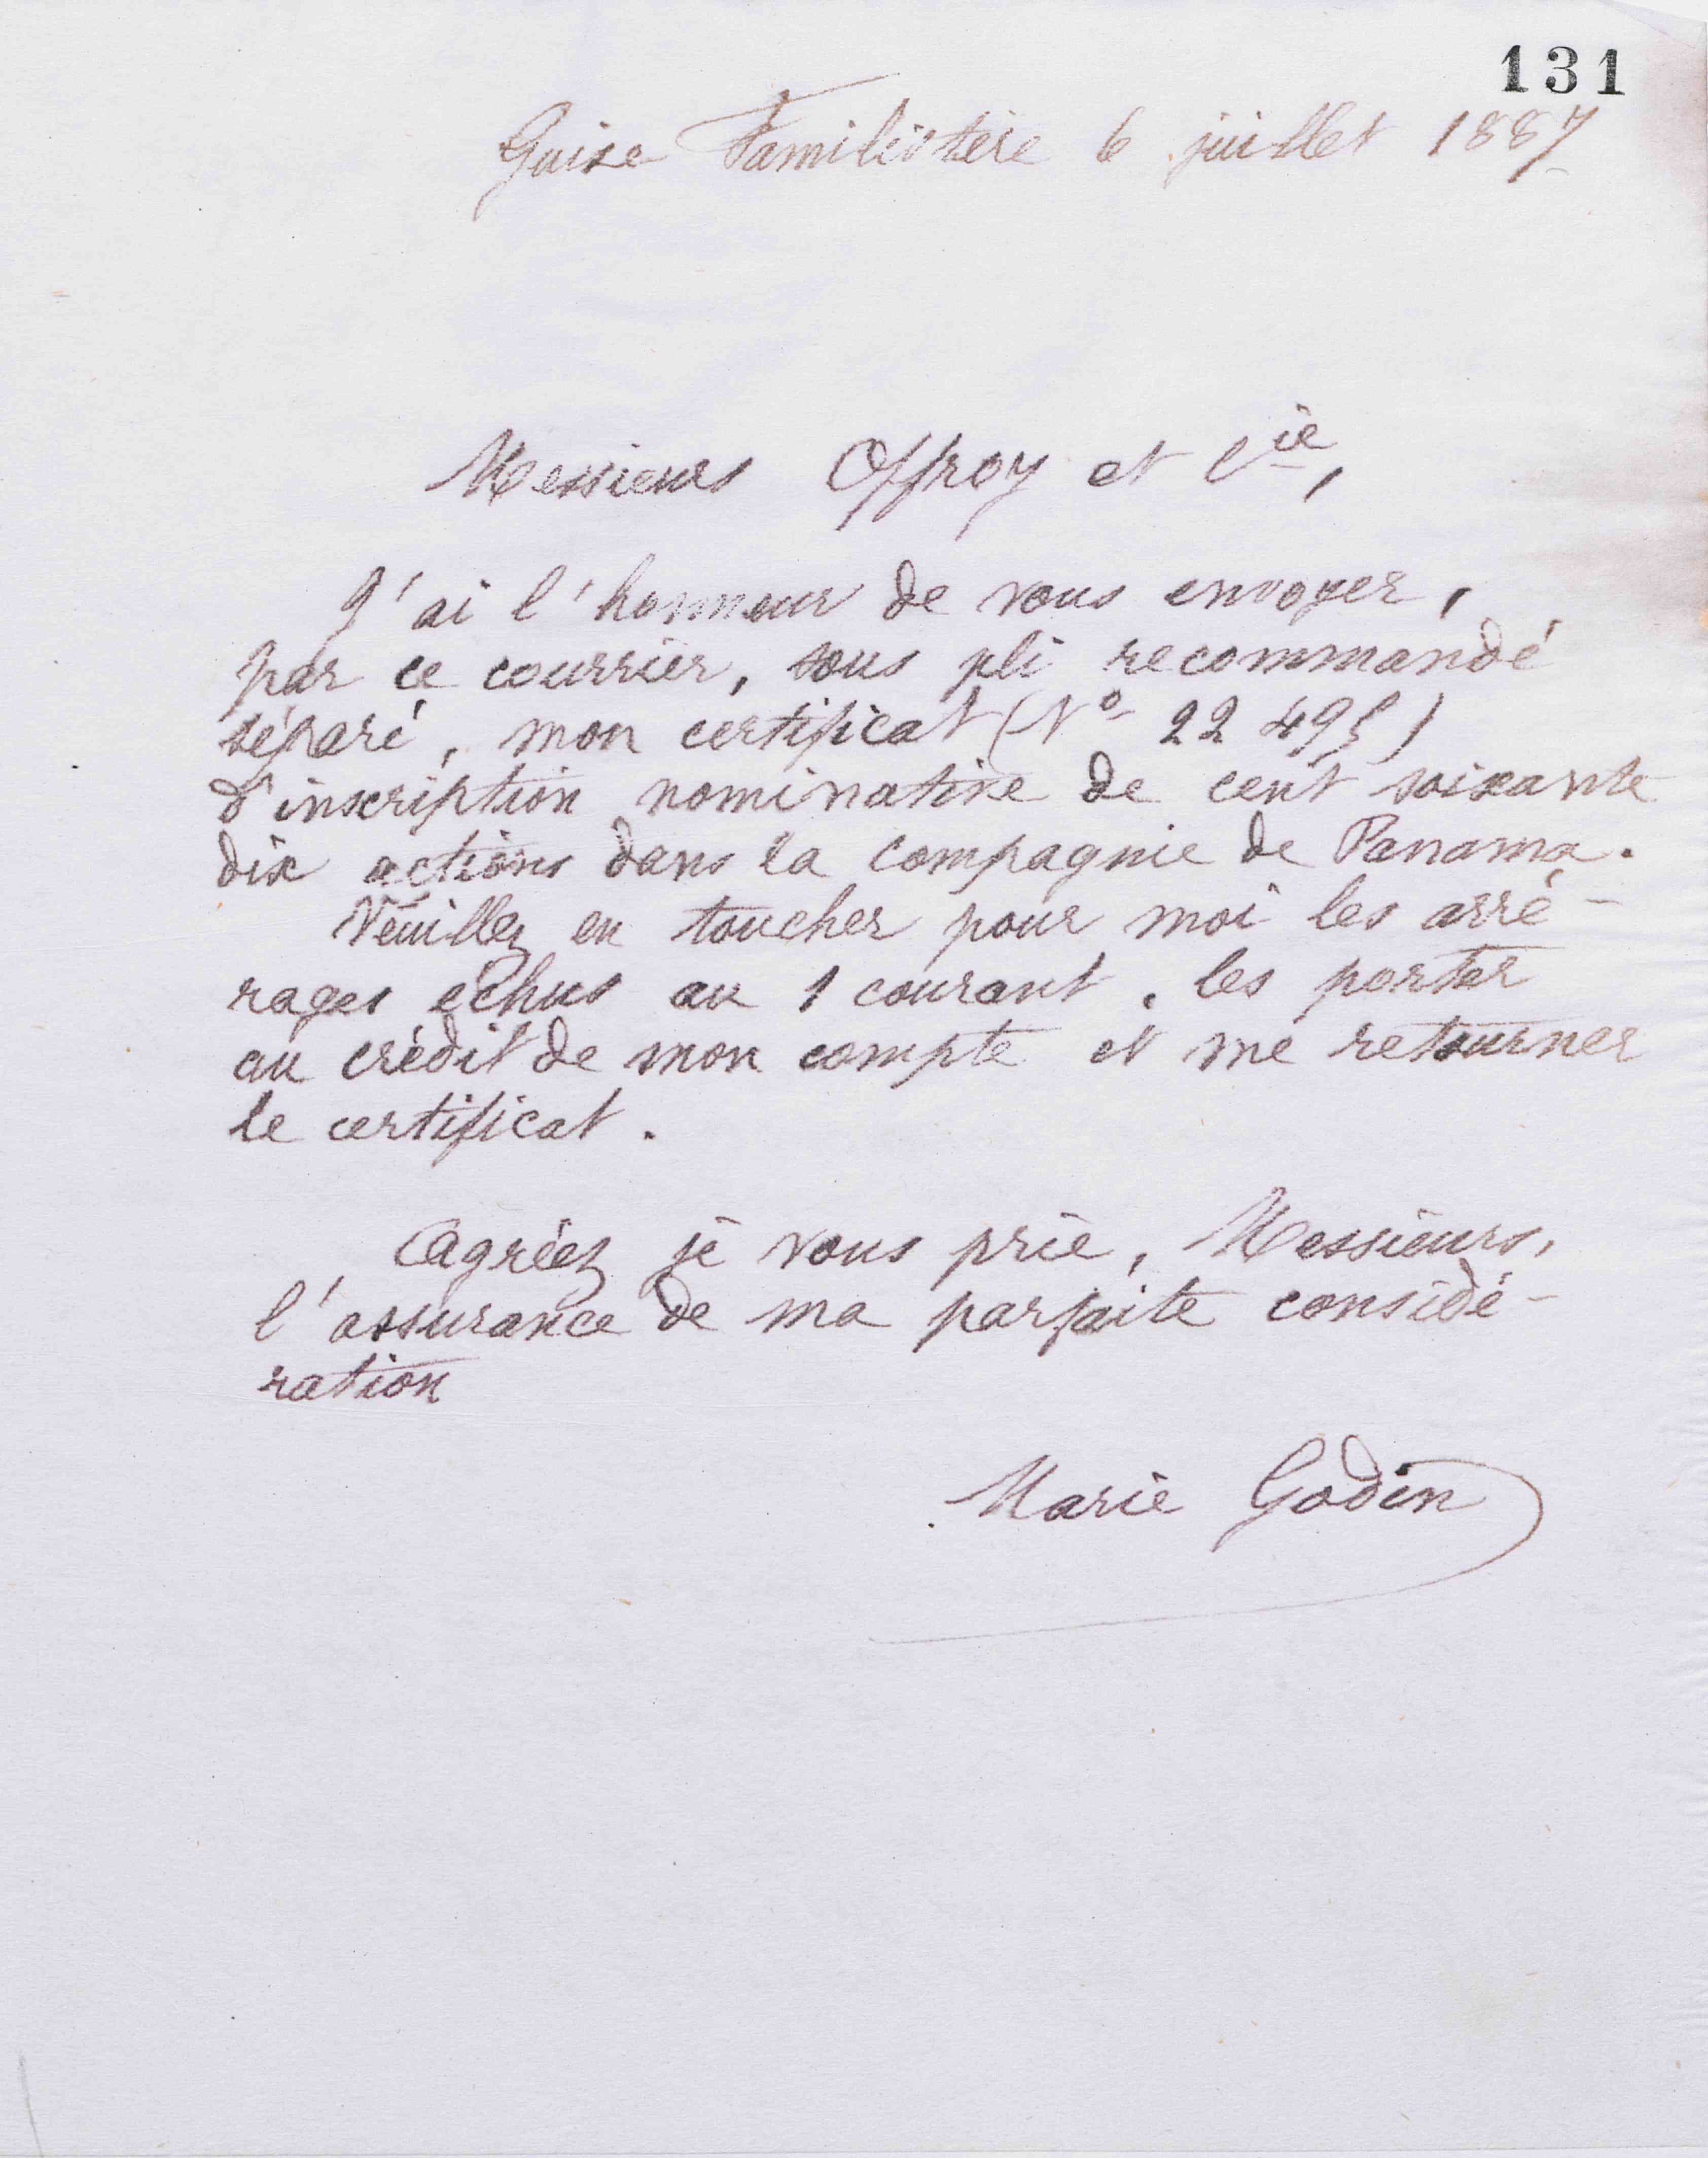 131
Guise Familistère 6 juillet 1887
Messieurs Offroy et Cie,
J'ai l'honneur de vous envoyer,
par ce courrier, sous pli recommandé
séparé, mon certificat (No 22 495)
d'inscription nominative de cent soixante
dix actions dans la Compagnie de Panama.
Veuillez en toucher pour moi les arré-
rages echus au 1 courant, les porter
au crédit de mon compte et me retourner
le certificat.
Agréez je vous prie, Messieurs,
l'assurance de ma parfaite considé-
ration
Marie Godin